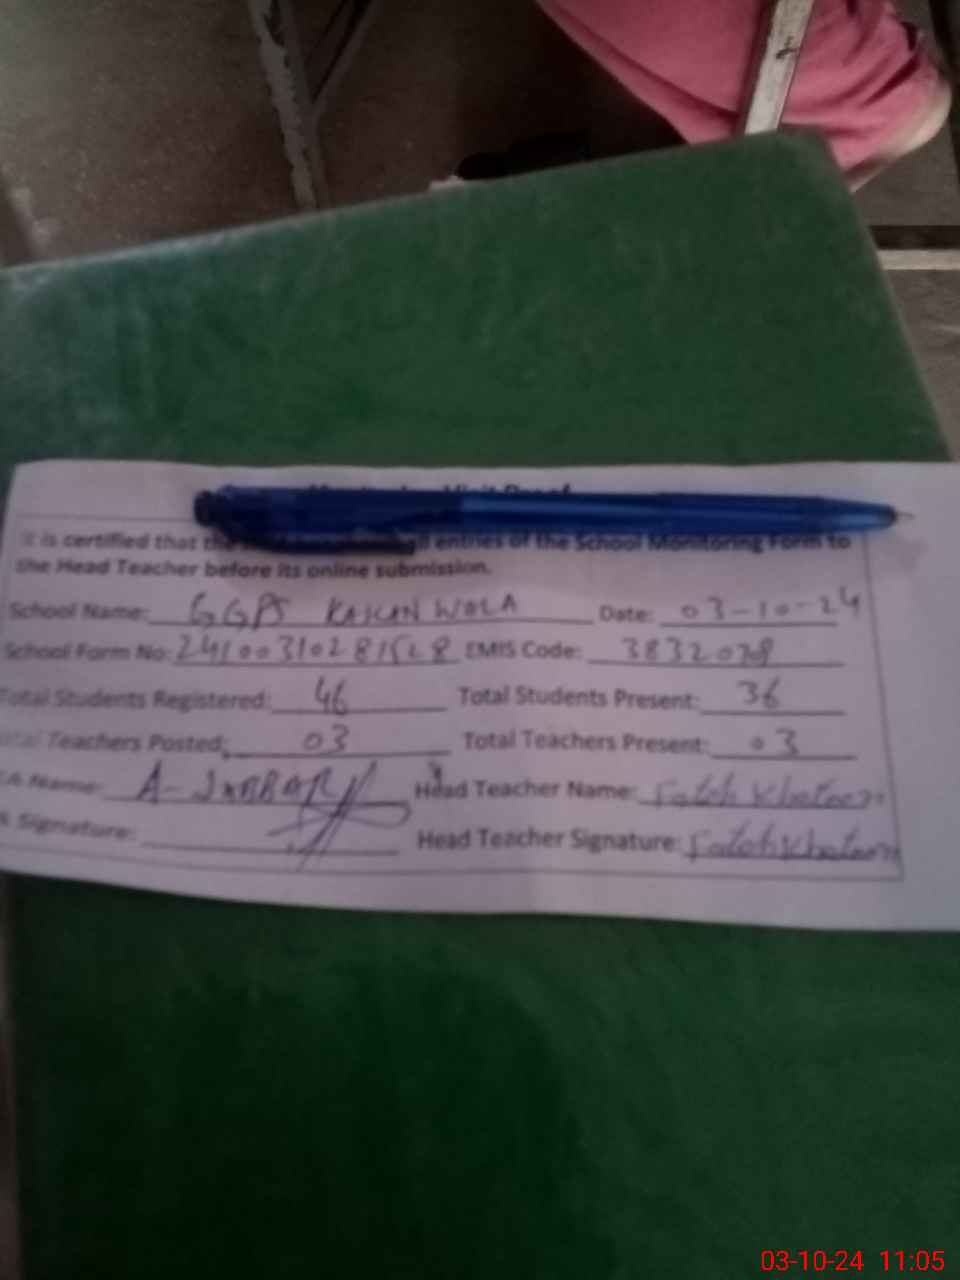 Visit Proof
It is certified that the all entries of the School Monitoring Form to
the Head Teacher before its online submission.
School Name: GGPS KAKAN WOLA Date: 03-10-24
School Form No: 24100310281528 EMIS Code:
Total Students Registered: 46 Total Students Present: 36
Total Teachers Posted: 03 Total Teachers Present: 03
Name: A- JABBAR Head Teacher Name: Fateh Khatoon
Signature: Head Teacher Signature: Fateh Khatoon
03-10-24 11:05